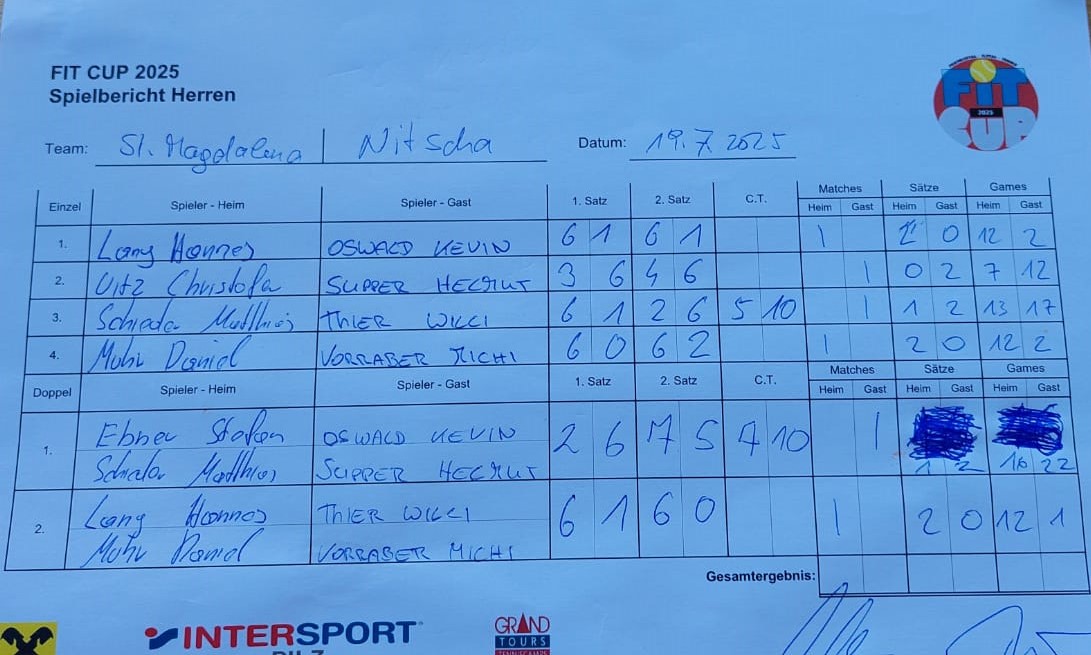 FIT CUP 2025
Spielbericht Herren
FIT
2025
CUP
Team: St. Magdalena | Nitscha Datum: 19.7.2025
Einzel Spieler - Heim Spieler - Gast 1. Satz 2. Satz C.T. Matches Sätze Games
Heim Gast Heim Gast Heim Gast
1. Lang Hannes OSWALD KEVIN 6 1 6 1 1 2 0 12 2
2. Uitz Christofer SUPPER HELMUT 3 6 4 6 1 0 2 7 12
3. Schieder Matthias THIER WILLI 6 1 2 6 5 10 1 1 2 13 17
4. Muhr Daniel VORRABER MICHI 6 0 6 2 1 2 0 12 2
Doppel Spieler - Heim Spieler - Gast 1. Satz 2. Satz C.T. Matches Sätze Games
Heim Gast Heim Gast Heim Gast
1. Ebner Stefan OSWALD KEVIN 2 6 7 5 7 10 1
Schieder Matthias SUPPER HELMUT 1 2 16 22
2. Lang Hannes THIER WILLI 6 1 6 0 1 2 0 12 1
Muhr Daniel VORRABER MICHI
Gesamtergebnis:
INTERSPORT
GRAND
TOURS